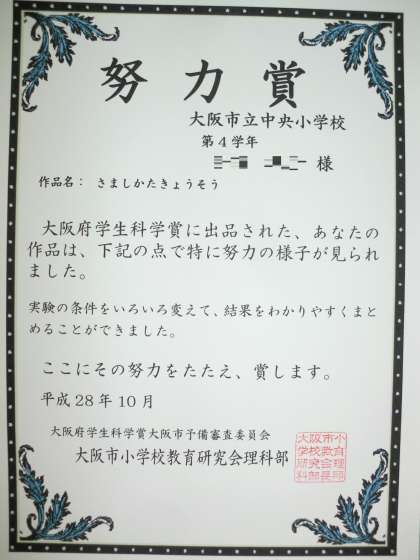 努力賞
大阪市立中央小学校
第4学年
様
作品名： さましかたきょうそう
大阪府学生科学賞に出品された、あなたの
作品は、下記の点で特に努力の様子が見られ
ました。
実験の条件をいろいろ変えて、結果をわかりやすくまと
めることができました。
ここにその努力をたたえ、賞します。
平成28年10月
大阪府学生科学賞大阪市予備審査委員会
大阪市小学校教育研究会理科部